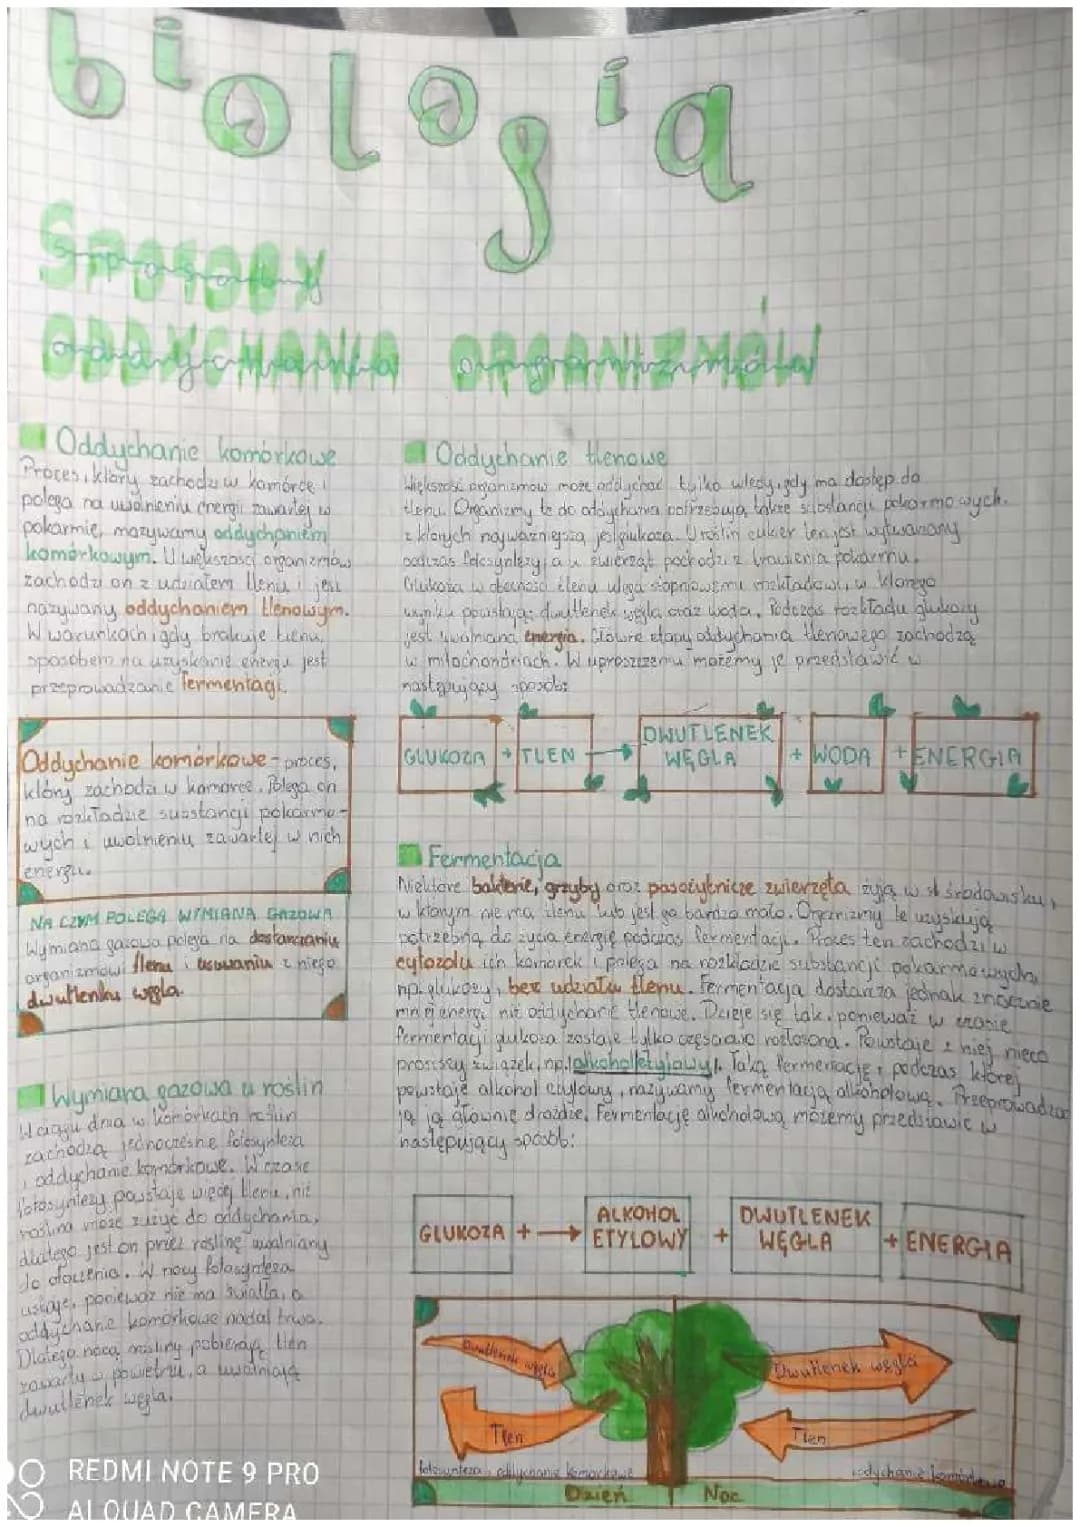 biologia
SPOSOBY
sposoby
ODDYCHANIA ORGANIZMÓW
oddychania organizmów
Oddychanie komórkowe
Proces, który zachodzi w komórce i
polega na uwolnieniu energii zawartej w
pokarmie, nazywamy oddychaniem
komórkowym. U większości organizmów
zachodzi on z udziałem tlenu i jest
nazywany oddychaniem tlenowym.
W warunkach, gdy brakuje tlenu,
sposobem na uzyskanie energii jest
przeprowadzanie fermentacji.
Oddychanie komórkowe - proces,
który zachodzi w komórce. Polega on
na rozkładzie substancji pokarmo-
wych i uwolnieniu zawartej w nich
energii.
NA CZYM POLEGA WYMIANA GAZOWA
Wymiana gazowa polega na dostarczaniu
organizmowi tlenu i usuwaniu z niego
dwutlenku węgla.
Wymiana gazowa u roślin
W ciągu dnia w komórkach roślin
zachodzą jednocześnie fotosynteza
i oddychanie komórkowe. W czasie
fotosyntezy powstaje więcej tlenu, niż
roślina może zużyć do oddychania,
dlatego jest on przez roślinę uwalniany
do otoczenia. W nocy fotosynteza
ustaje, ponieważ nie ma światła, a
oddychanie komórkowe nadal trwa.
Dlatego nocą rośliny pobierają tlen
zawarty w powietrzu, a uwalniają
dwutlenek węgla.
Oddychanie tlenowe
Większość organizmów może oddychać tylko wtedy, gdy ma dostęp do
tlenu. Organizmy te do oddychania potrzebują także substancji pokarmowych.
z których najważniejszą jest glukoza. U roślin cukier ten jest wytwarzany
podczas fotosyntezy, a u zwierząt pochodzi z trawienia pokarmu.
Glukoza w obecności tlenu ulega stopniowemu rozkładowi, w którego
wyniku powstają: dwutlenek węgla oraz woda. Podczas rozkładu glukozy
jest uwalniana energia. Główne etapy oddychania tlenowego zachodzą
w mitochondriach. W uproszczeniu możemy je przedstawić w
następujący sposób:
GLUKOZA + TLEN → DWUTLENEK WĘGLA + WODA + ENERGIA
Fermentacja
Niektóre bakterie, grzyby oraz pasożytnicze zwierzęta żyją w środowisku,
w którym nie ma tlenu lub jest go bardzo mało. Organizmy te uzyskują
potrzebną do życia energię podczas fermentacji. Proces ten zachodzi w
cytozolu ich komórek i polega na rozkładzie substancji pokarmowych,
np. glukozy, bez udziału tlenu. Fermentacja dostarcza jednak znacznie
mniej energii niż oddychanie tlenowe. Dzieje się tak, ponieważ w czasie
fermentacji glukoza zostaje tylko częściowo rozłożona. Powstaje z niej nieco
prostszy związek, np. alkohol etylowy. Taką fermentację, podczas której
powstaje alkohol etylowy, nazywamy fermentacją alkoholową. Przeprowadza
ją głównie drożdże. Fermentację alkoholową możemy przedstawić w
następujący sposób:
GLUKOZA + → ALKOHOL ETYLOWY + DWUTLENEK WĘGLA + ENERGIA
Dwutlenek węgla
Dwutlenek węgla
Tlen
Tlen
fotosynteza i oddychanie komórkowe
oddychanie komórkowe
Dzień Noc
REDMI NOTE 9 PRO
AI QUAD CAMERA